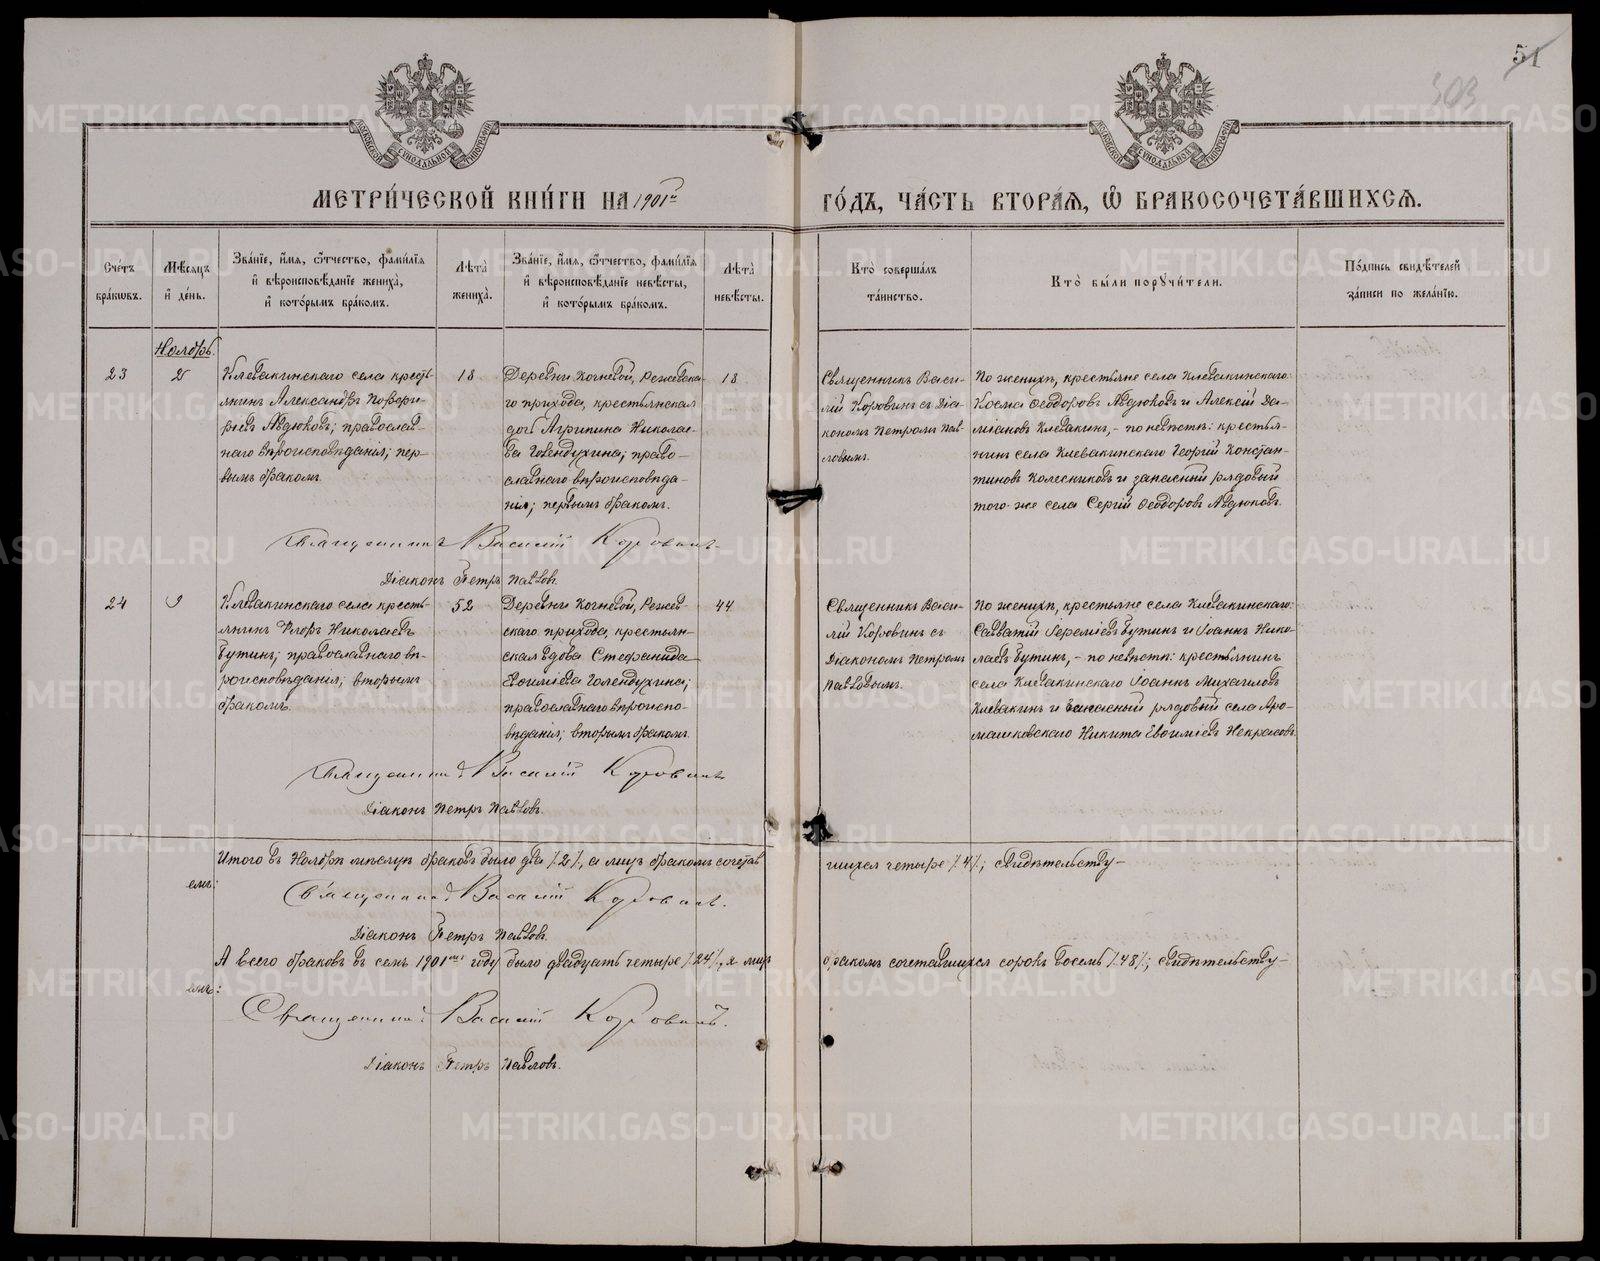 51
303
МЕТРИ́ЧЕСКОЙ КНИ́ГИ НА 1901й ГО́ДЪ, ЧА́СТЬ ВТОРА́Я, Ѽ БРАКОСОЧЕТА́ВШИХСЯ.
Сче́тъ
бра́кѡвъ.
Мѣ́сяцъ
и҆ де́нь.
Зва́нїе, и҆́мя, ѻ҆́тчество, фами́лїя
и҆ вѣроисповѣ́данїе жениха̀,
и҆ кото́рымъ бра́комъ.
Лѣта̀
жениха̀.
Зва́нїе, и҆́мя, ѻ҆́тчество, фами́лїя
и҆ вѣроисповѣ́данїе невѣ́сты,
и҆ кото́рымъ бра́комъ.
Лѣта̀
невѣ́сты.
Кто̀ соверша́лъ
та́инство.
Кто̀ бы́ли порꙋчи́тели.
По́дпись свидѣ́телей
за́писи по жела́нїю.
Ноябрь.
23
2
Клевакинскаго села кресть-
янинъ Александръ Порфирь-
рьевъ Авдюковъ; православ-
наго вѣроисповѣданія; пер-
вымъ бракомъ.
18
Деревни Кочневой, Режевска-
го прихода, крестьянская
дочь Агрипина Николае-
ва Голендухина; право-
славнаго вѣроисповѣда-
нія; первымъ бракомъ.
18
Священникъ Васи-
лій Коровинъ съ діа-
кономъ Петромъ Пав-
ловымъ.
По женихѣ, крестьяне села Клевакинскаго:
Косма Ѳеодоровъ Авдюковъ и Алексій Да-
міановъ Клевакинъ, - по невѣстѣ: кресть-
нинъ села Клевакинскаго Георгій Констан-
тиновъ Колесниковъ и запасный рядовый
того-же села Сергій Ѳеодоровъ Авдюковъ.
Священникъ Василій Коровинъ.
Діаконъ Петръ Павловъ.
24
9
Клевакинскаго села кресть-
янинъ Флоръ Николаевъ
Бутинъ; православнаго вѣ-
роисповѣданія; вторымъ
бракомъ.
52
Деревни Кочневой, Режев-
скаго прихода, крестьян-
ская вдова Стефанида
Евѳиміева Голендухина;
православнаго вѣроиспо-
вѣданія; вторымъ бракомъ.
44
Священникъ Васи-
лій Коровинъ съ
Діакономъ Петромъ
Павловымъ.
По женихѣ, крестьяне села Клевакинскаго:
Савватій Іереміевъ Бутинъ и Іоаннъ Нико-
лаевъ Бутинъ, - по невѣстѣ: крестьянинъ
села Клевакинскаго Іоаннъ Михаиловъ
Клевакинъ и запасный рядовый села Аро-
машковскаго Никита Евѳиміевъ Некрасовъ.
Священникъ Василій Коровинъ
Діаконъ Петръ Павловъ.
Итого въ Ноябрѣ мѣсяцѣ браковъ было два /2/, а лицъ бракомъ сочетав
шихся четыре /4/; свидѣтельству-
емъ:
Священникъ Василій Коровинъ.
Діаконъ Петръ Павловъ.
А всего браковъ въ семъ 1901мъ году было двадцать четыре /24/, а лицъ
бракомъ сочетавшихся сорокъ восемь /48/; свидѣтельству-
емъ:
Священникъ Василій Коровинъ.
Діаконъ Петръ Павловъ.